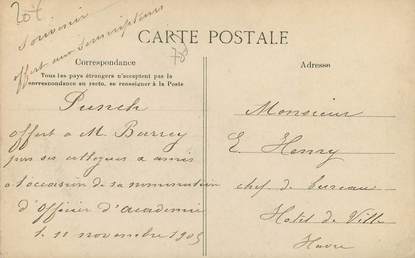 20f
Souvenir
offert aux Souscripteurs
CARTE POSTALE
78
Correspondance
Tous les pays étrangers n'acceptent pas la
correspondance au recto, se renseigner à la Poste
Punch
offert à M. Barrey
par ses collègues & amis
à l'occasion de sa nomination
d'Officier d'académie
le 11 novembre 1905
Adresse
Monsieur
E. Henry
chef de bureau
Hotel de Ville
Havre